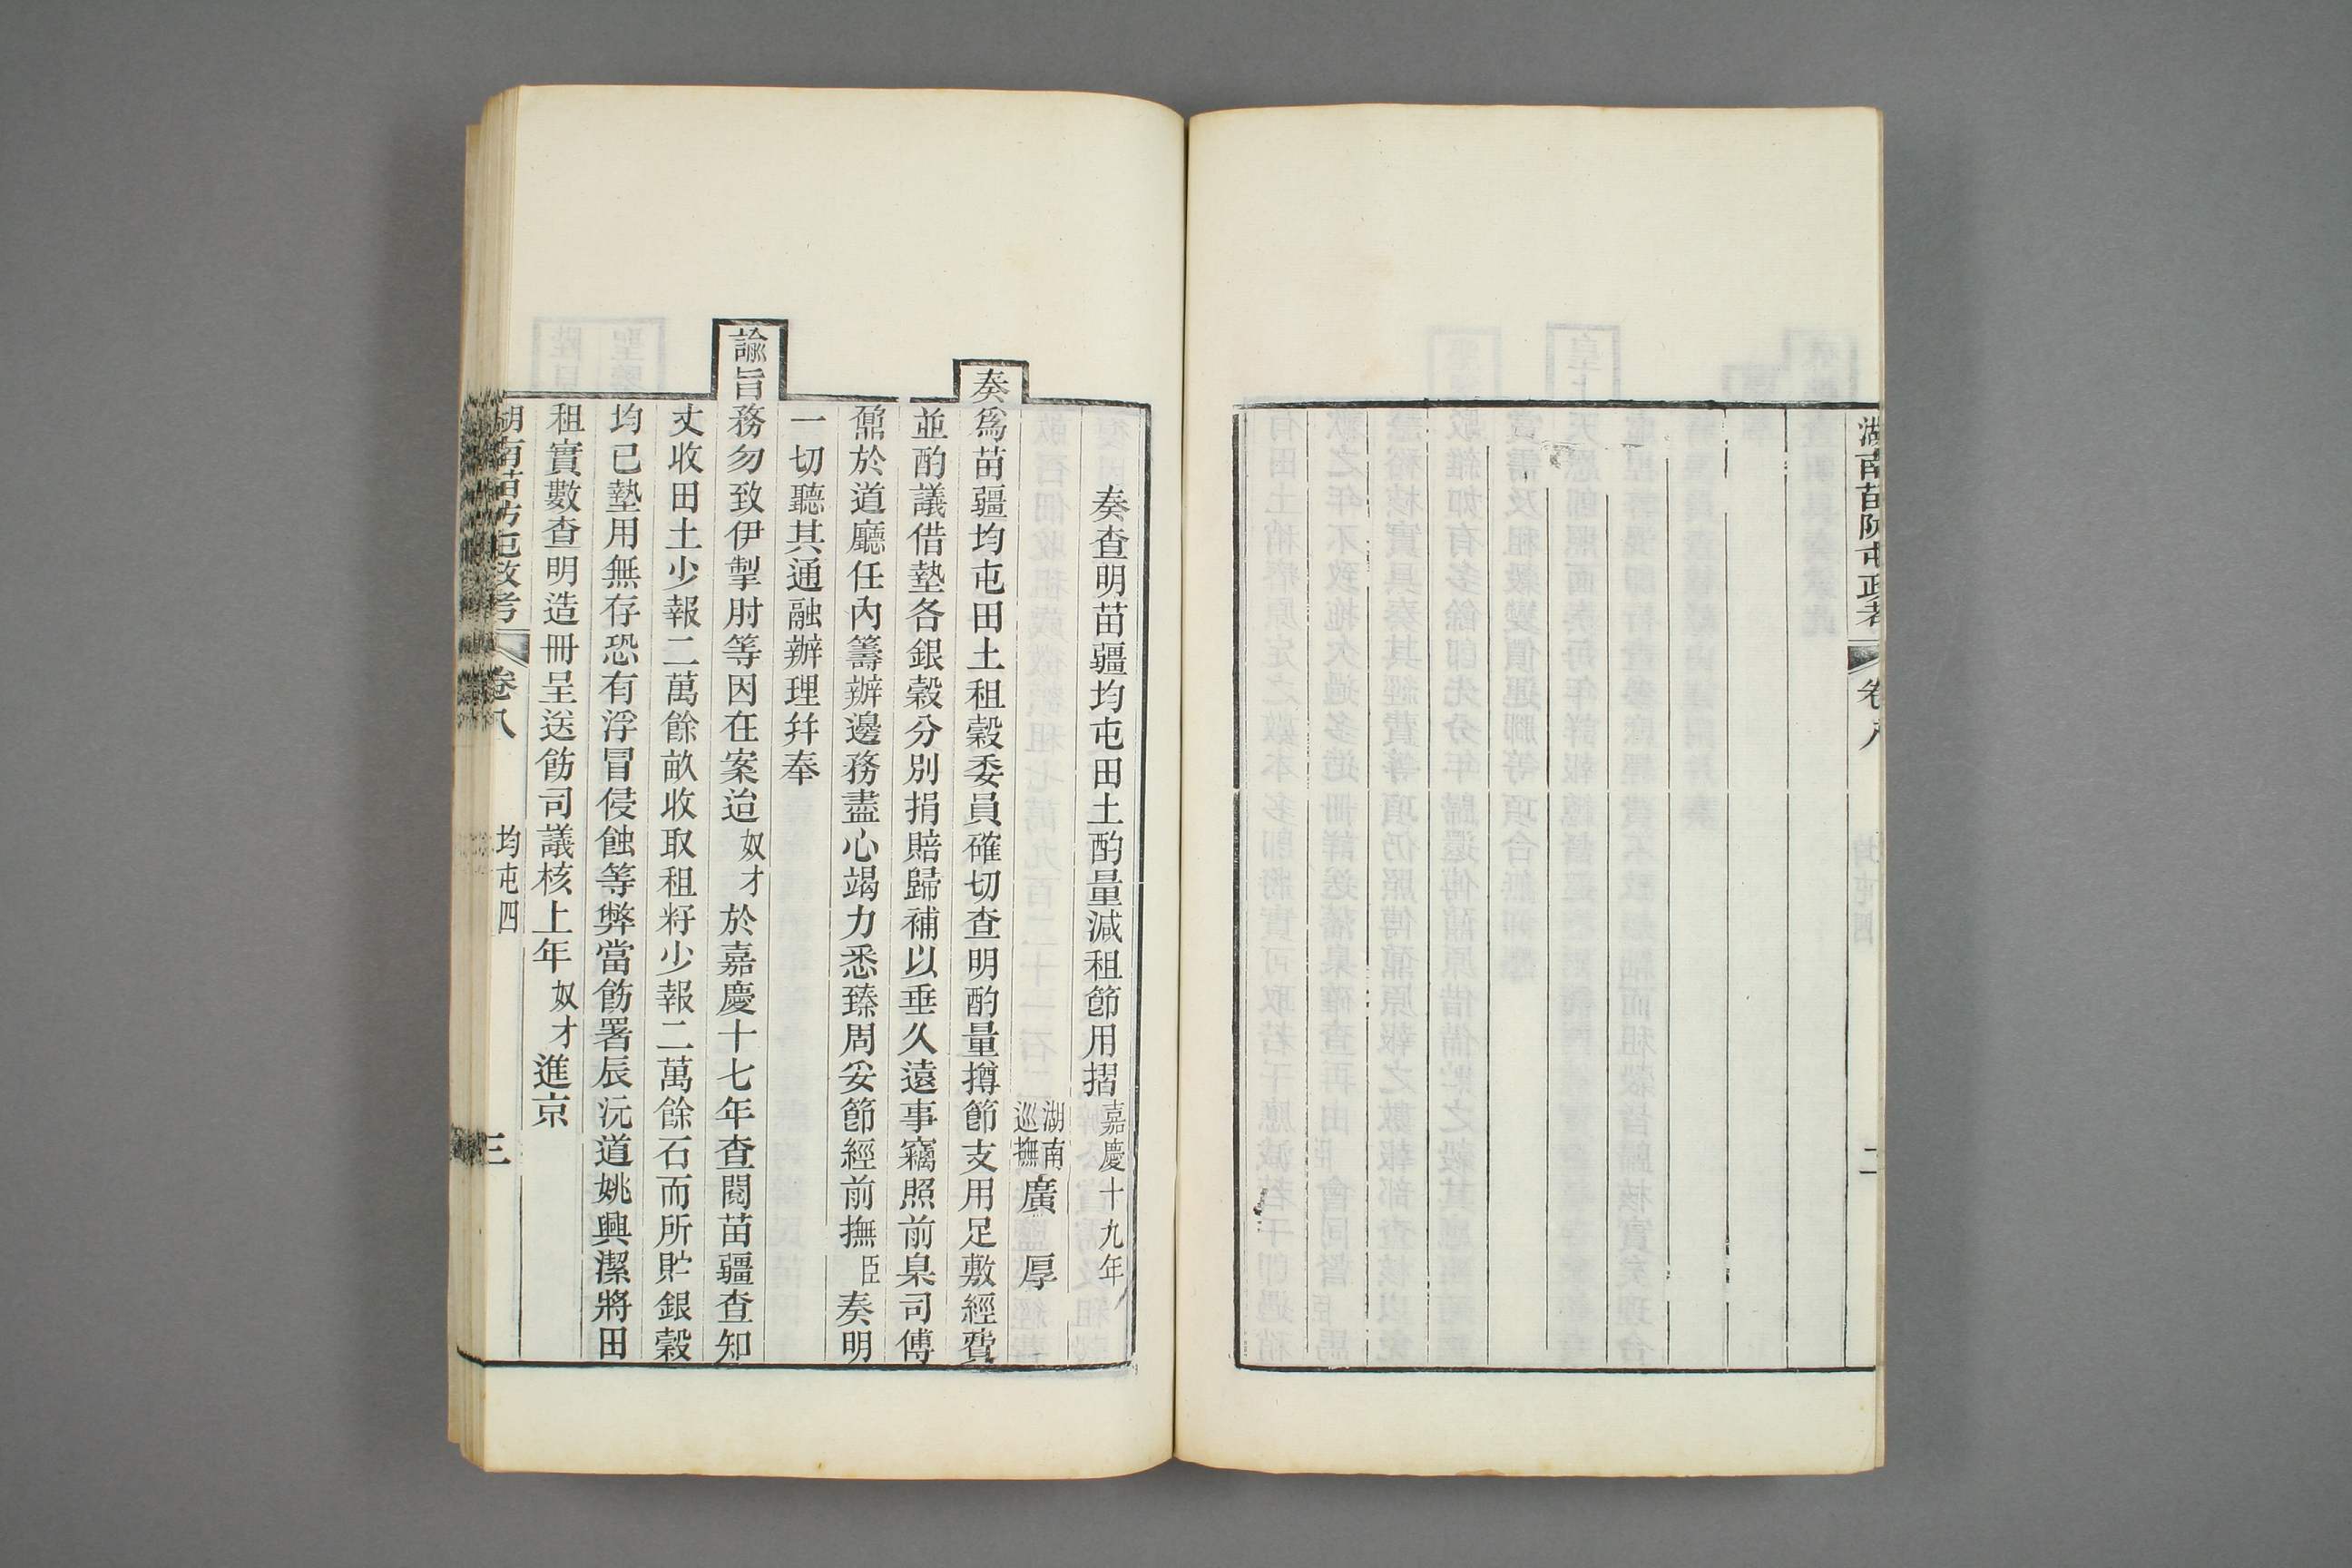 湖南苗防屯政考
卷八
二
奏查明苗疆均屯田土酌量減租節用摺嘉慶十九年
湖南巡撫廣厚
奏爲苗疆均屯田土租穀委員確切查明酌量撙節支用足敷經費
並酌議借墊各銀穀分別捐賠歸補以垂久遠事竊照前臬司傅
鼐於道廳任內籌辦邊務盡心竭力悉臻周妥節經前撫臣奏明
一切聽其通融辦理幷奉
諭旨務勿致伊掣肘等因在案迨奴才於嘉慶十七年查閱苗疆查知
丈收田土少報二萬餘畝收取租籽少報二萬餘石而所貯銀穀
均已墊用無存恐有浮冒侵蝕等弊當飭署辰沅道姚興潔將田
租實數查明造冊呈送飭司議核上年奴才進京
湖南苗防屯政考
卷八
均屯四
三